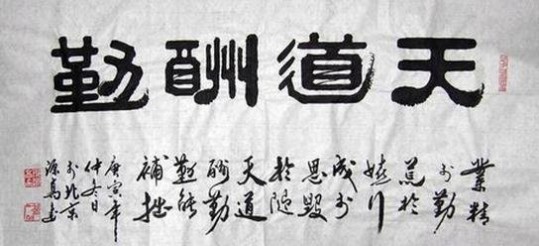 天道酬勤
業精
於勤
荒於
嬉行
成於
思毀
於隨
天道
酬勤
勤能
補拙
庚寅年
仲冬日
於北京